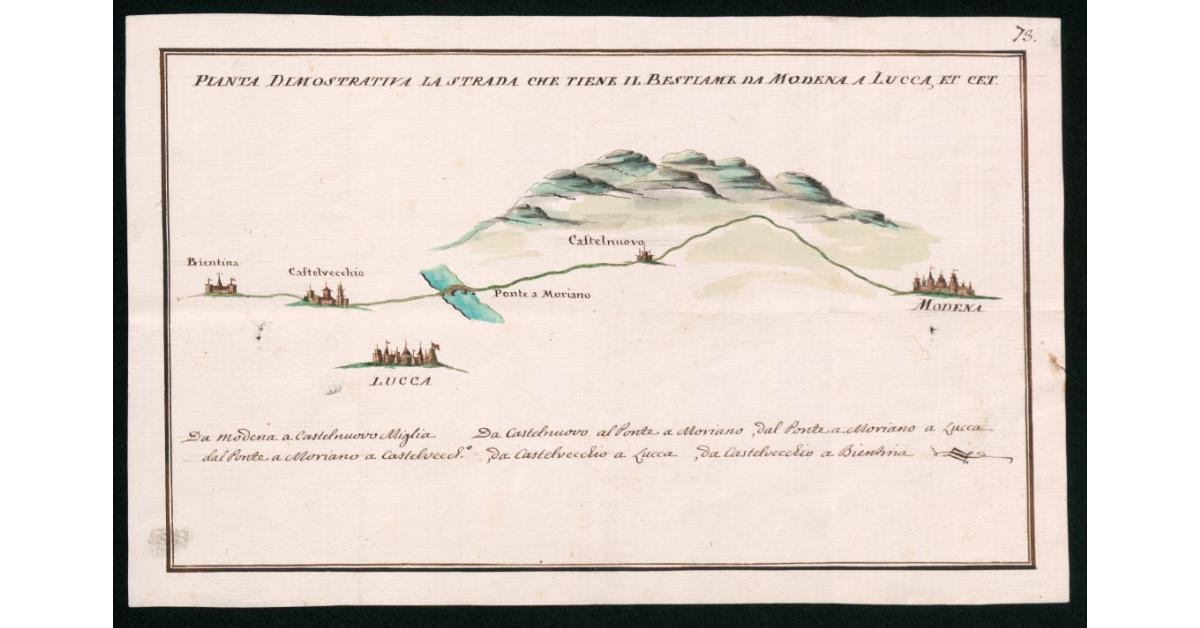 73.
PIANTA DIMOSTRATIVA LA STRADA CHE TIENE IL BESTIAME DA MODENA A LUCCA, ET CET.
Castelnuovo
Bientina
Castelvecchio
Ponte a Moriano
MODENA
LUCCA
Da modena a Castelnuovo Miglia Da Castelnuovo al Ponte a Moriano, dal Ponte a Moriano a Lucca
dal Ponte a Moriano a Castelvecch.º, da Castelvecchio a Lucca, da Castelvecchio a Bientina